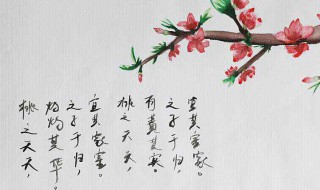 桃之夭夭，
灼灼其华。
之子于归，
宜其家室。
桃之夭夭，
有蕡其实。
之子于归，
宜其室家。